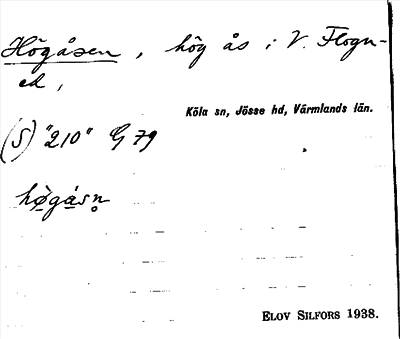 Högåsen, hög ås i V. Flogn-
ed,
Köla sn, Jösse hd, Värmlands län.
(S) "210" G 79
høgåsn̥
ELOV SILFORS 1938.